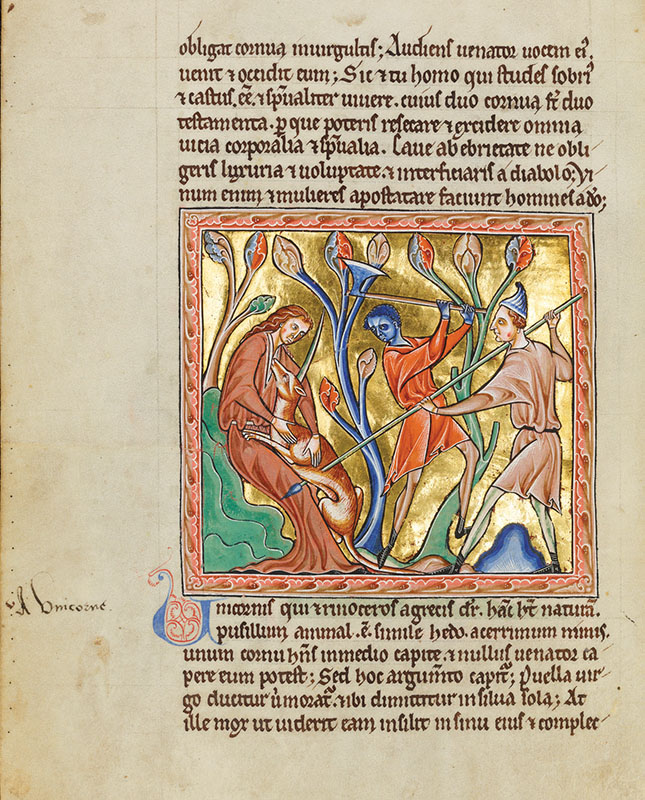 obligat cornua in uirgultis; Audiens uenator uocem ei᷒.
uenit ⁊ occidit eum; Sic ⁊ tu homo qui studes sobri᷒
⁊ castus. ee̅. ⁊ sp̅ualiter uiuere. cuius duo cornua st̅ duo
testamenta. ꝑ que poteris resecare ⁊ excidere omnia
uicia corporalia ⁊ sp̅ualia. Caue ab ebrietate ne obli
geris luxuria ⁊ uoluptate. ⁊ interficiaris a diabolo; Vi
num enim ⁊ mulieres apostatare faciunt homines a do̅;
A Vnicorne.
Unicornis qui ⁊ rinoceros a grecis dr̅. hac̅ ht̅ natura̅.
pusillum animal. e̅. simile hedo. acerrimum nimis.
unum cornu hn̅s in medio capite. ⁊ nullus uenator ca
pere eum potest; Sed hoc argum̅to capit᷑; Puella uir
go ducitur u̍ morat᷑. ⁊ ibi dimittitur in silua sola; At
ille mox ut uiderit eam insilit in sinu eius ⁊ complec